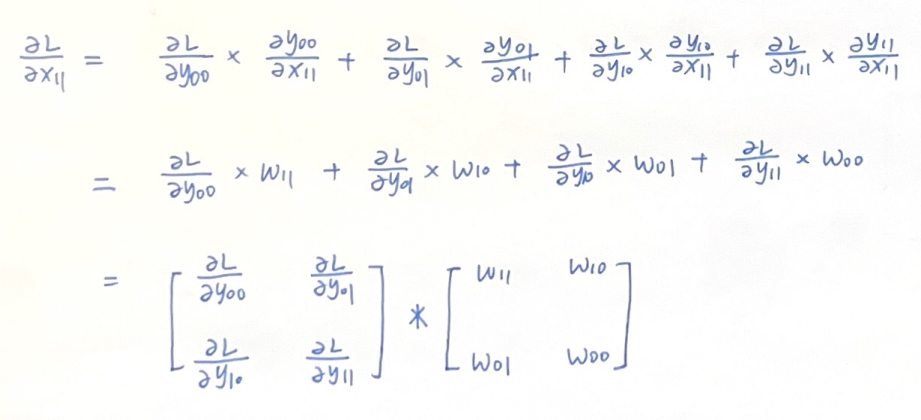 ∂L/∂x11 = ∂L/∂y00 × ∂y00/∂x11 + ∂L/∂y01 × ∂y01/∂x11 + ∂L/∂y10 × ∂y10/∂x11 + ∂L/∂y11 × ∂y11/∂x11
= ∂L/∂y00 × w11 + ∂L/∂y01 × w10 + ∂L/∂y10 × w01 + ∂L/∂y11 × w00
= [ ∂L/∂y00 ∂L/∂y01 ; ∂L/∂y10 ∂L/∂y11 ] * [ w11 w10 ; w01 w00 ]